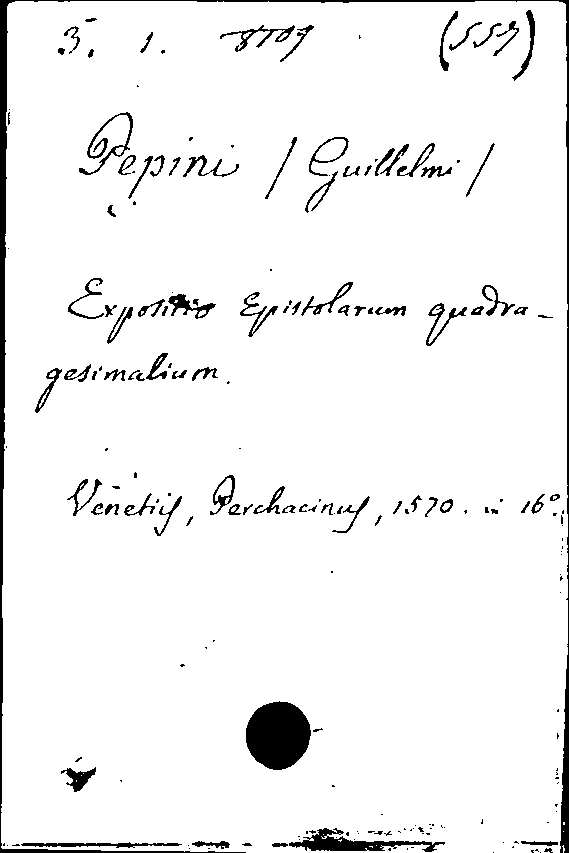 5. 1. 8709 (559)
Pepini / Guillelmi /
Expositio Epistolarum quadra-
gesimalium.
Venetiis, Perchacinus, 1570. in 16°.